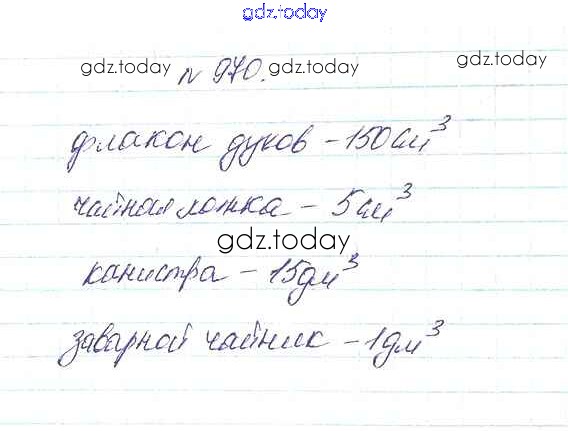 gdz.today
gdz.today № 970. gdz.today gdz.today
флакон духов – 150 см³
чайная ложка – 5 см³
gdz.today
канистра – 15 дм³
заварной чайник – 1 дм³